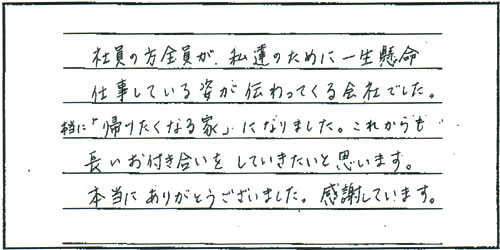 社員の方全員が、私達のために一生懸命
仕事している姿が伝わってくる会社でした。
本当に「帰りたくなる家」になりました。これからも
長いお付き合いをしていきたいと思います。
本当にありがとうございました。感謝しています。